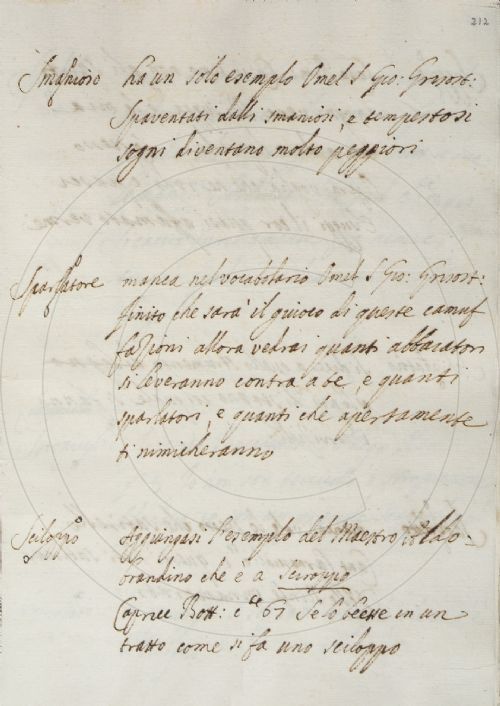 212
Smanioso ha un solo esempio Omel S Gio: Grisost:
Spaventati dalli smaniosi, e tempestosi
sogni diventano molto peggiori
Sparlatore manca nel vocabolario Omel S Gio: Grisost:
finito che sarà il giuoco di queste camuf
fazioni allora vedrai quanti abbaiatori
si leveranno contra a te, e quanti
sparlatori, e quanti che apertamente
ti nimicheranno
Sciloppo Aggiungasi l'esempio del Maestro Aldo-
brandino che è a sciroppo
Capricc Bott: c 67 Se lo beesse in un
tratto come si fa uno sciloppo